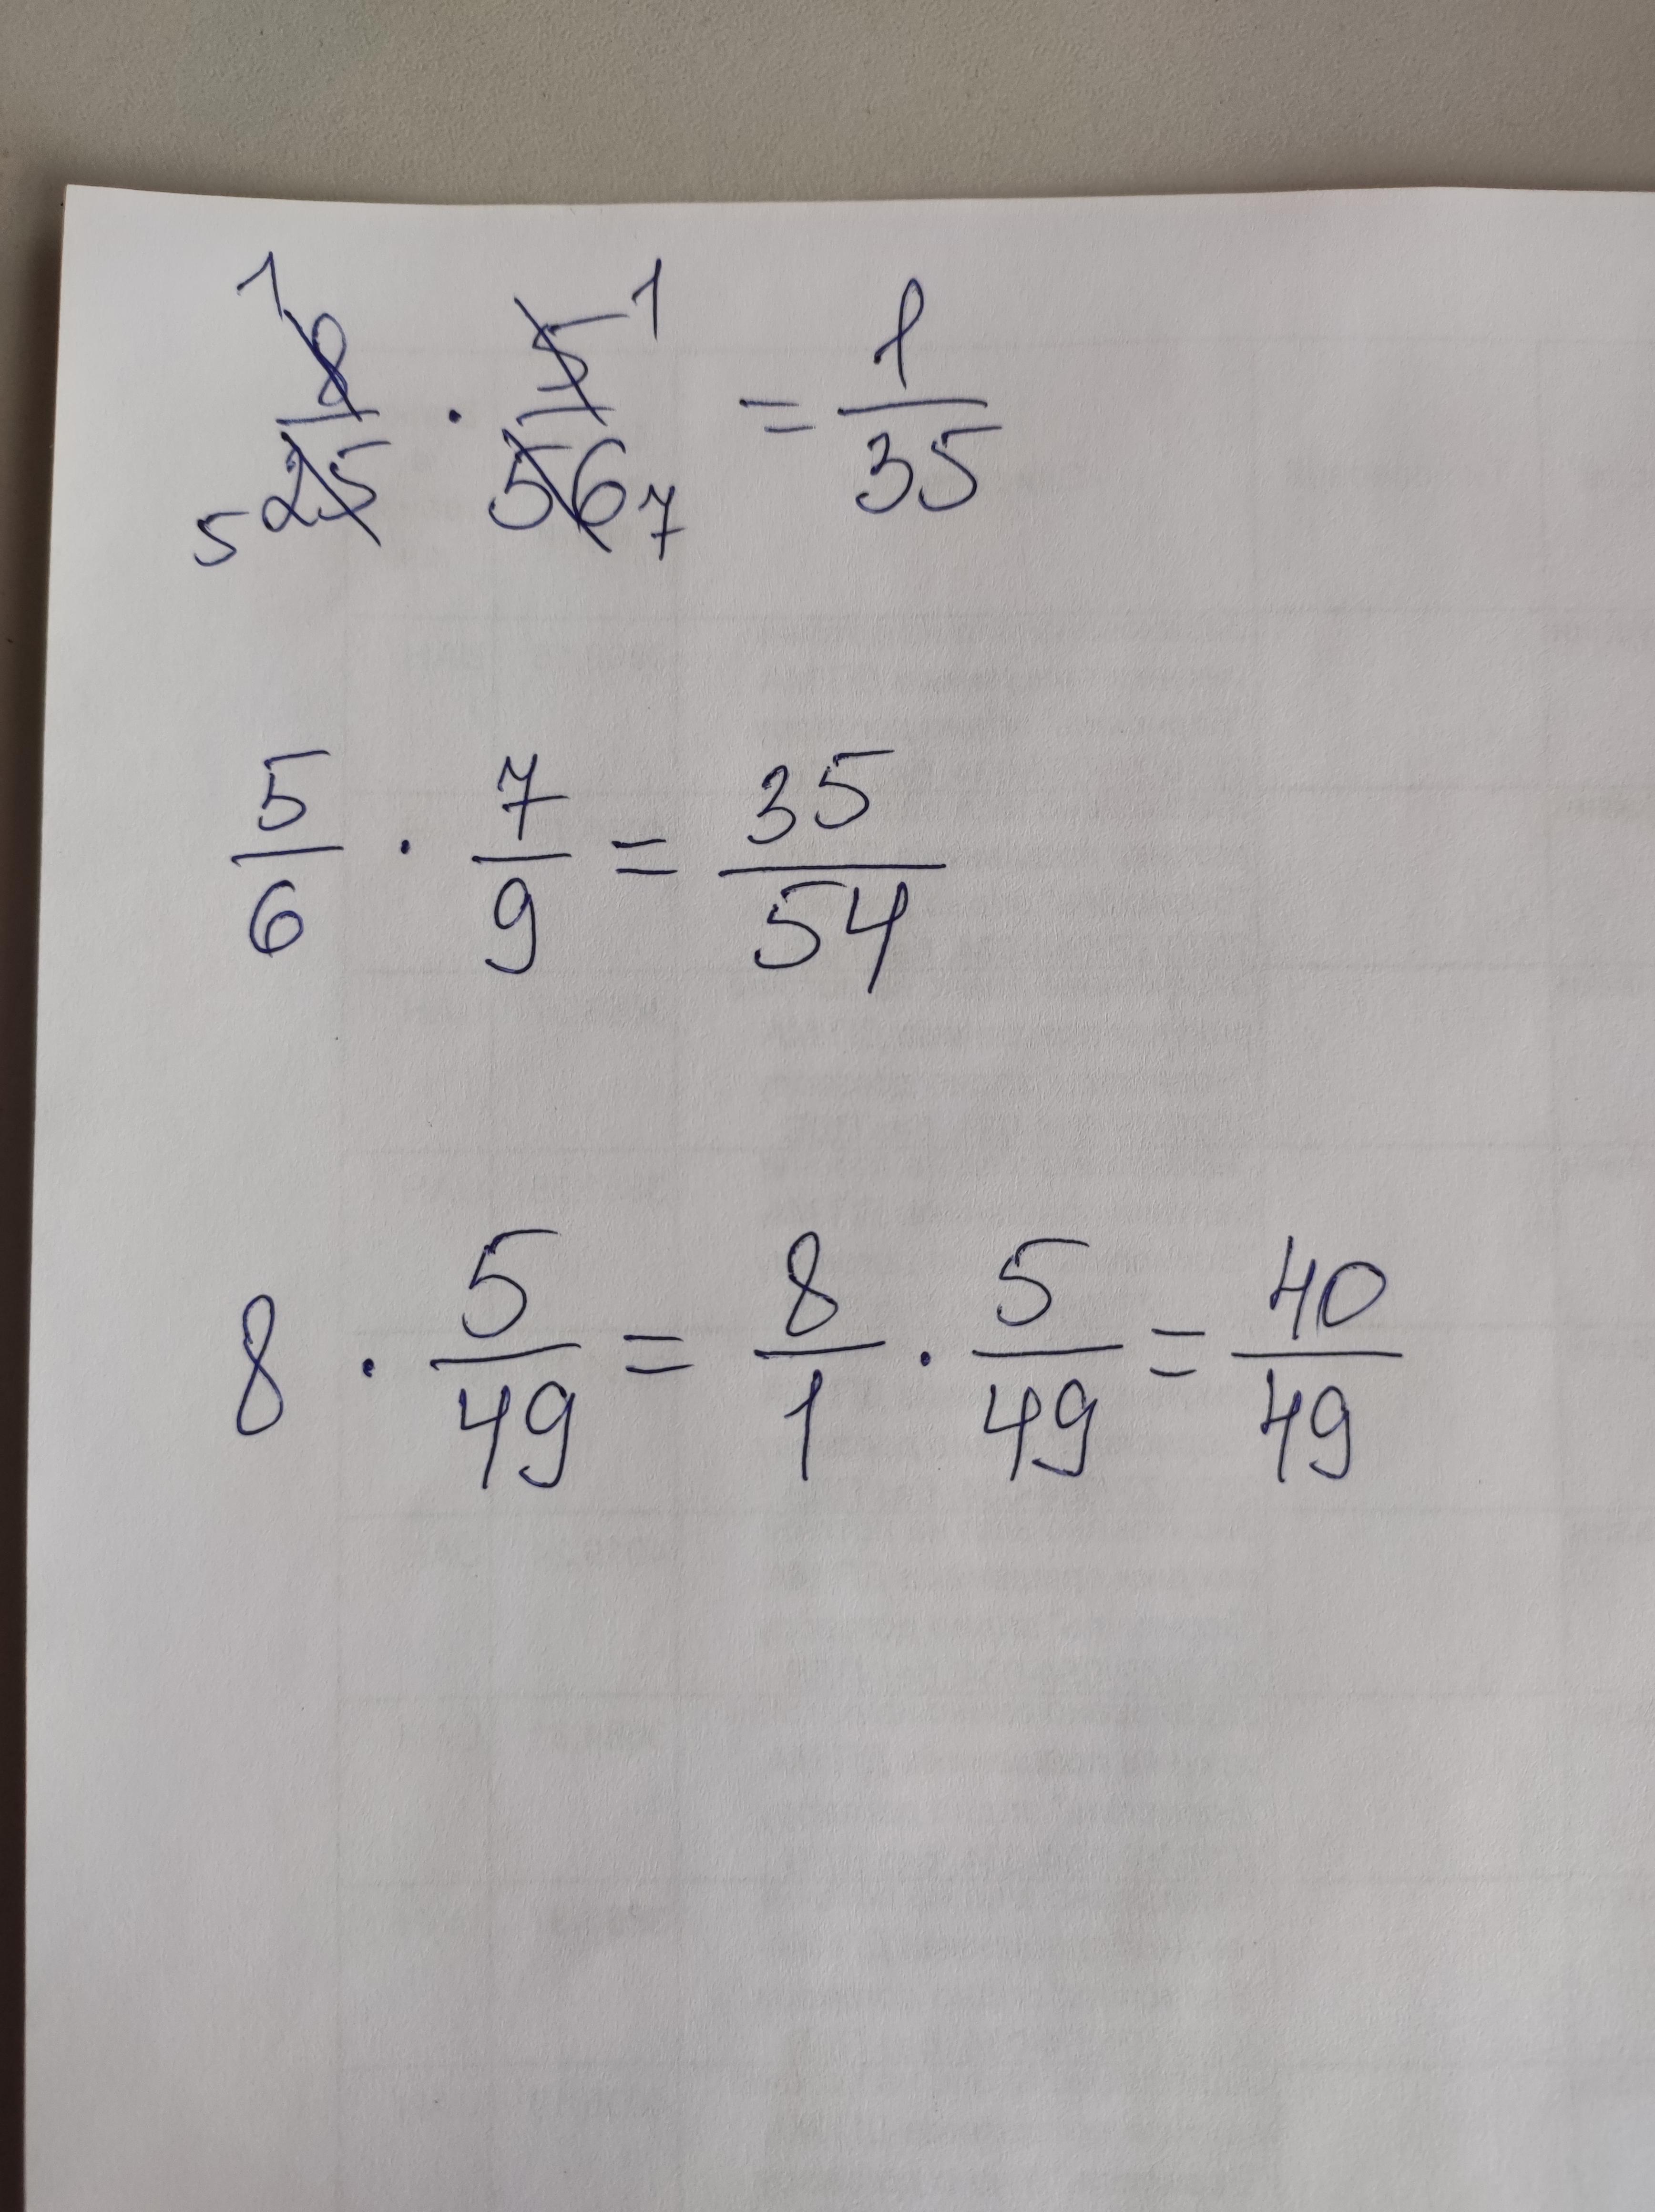 1 8/25 5 · 5/56 1 7 = 1/35
5/6 · 7/9 = 35/54
8 · 5/49 = 8/1 · 5/49 = 40/49